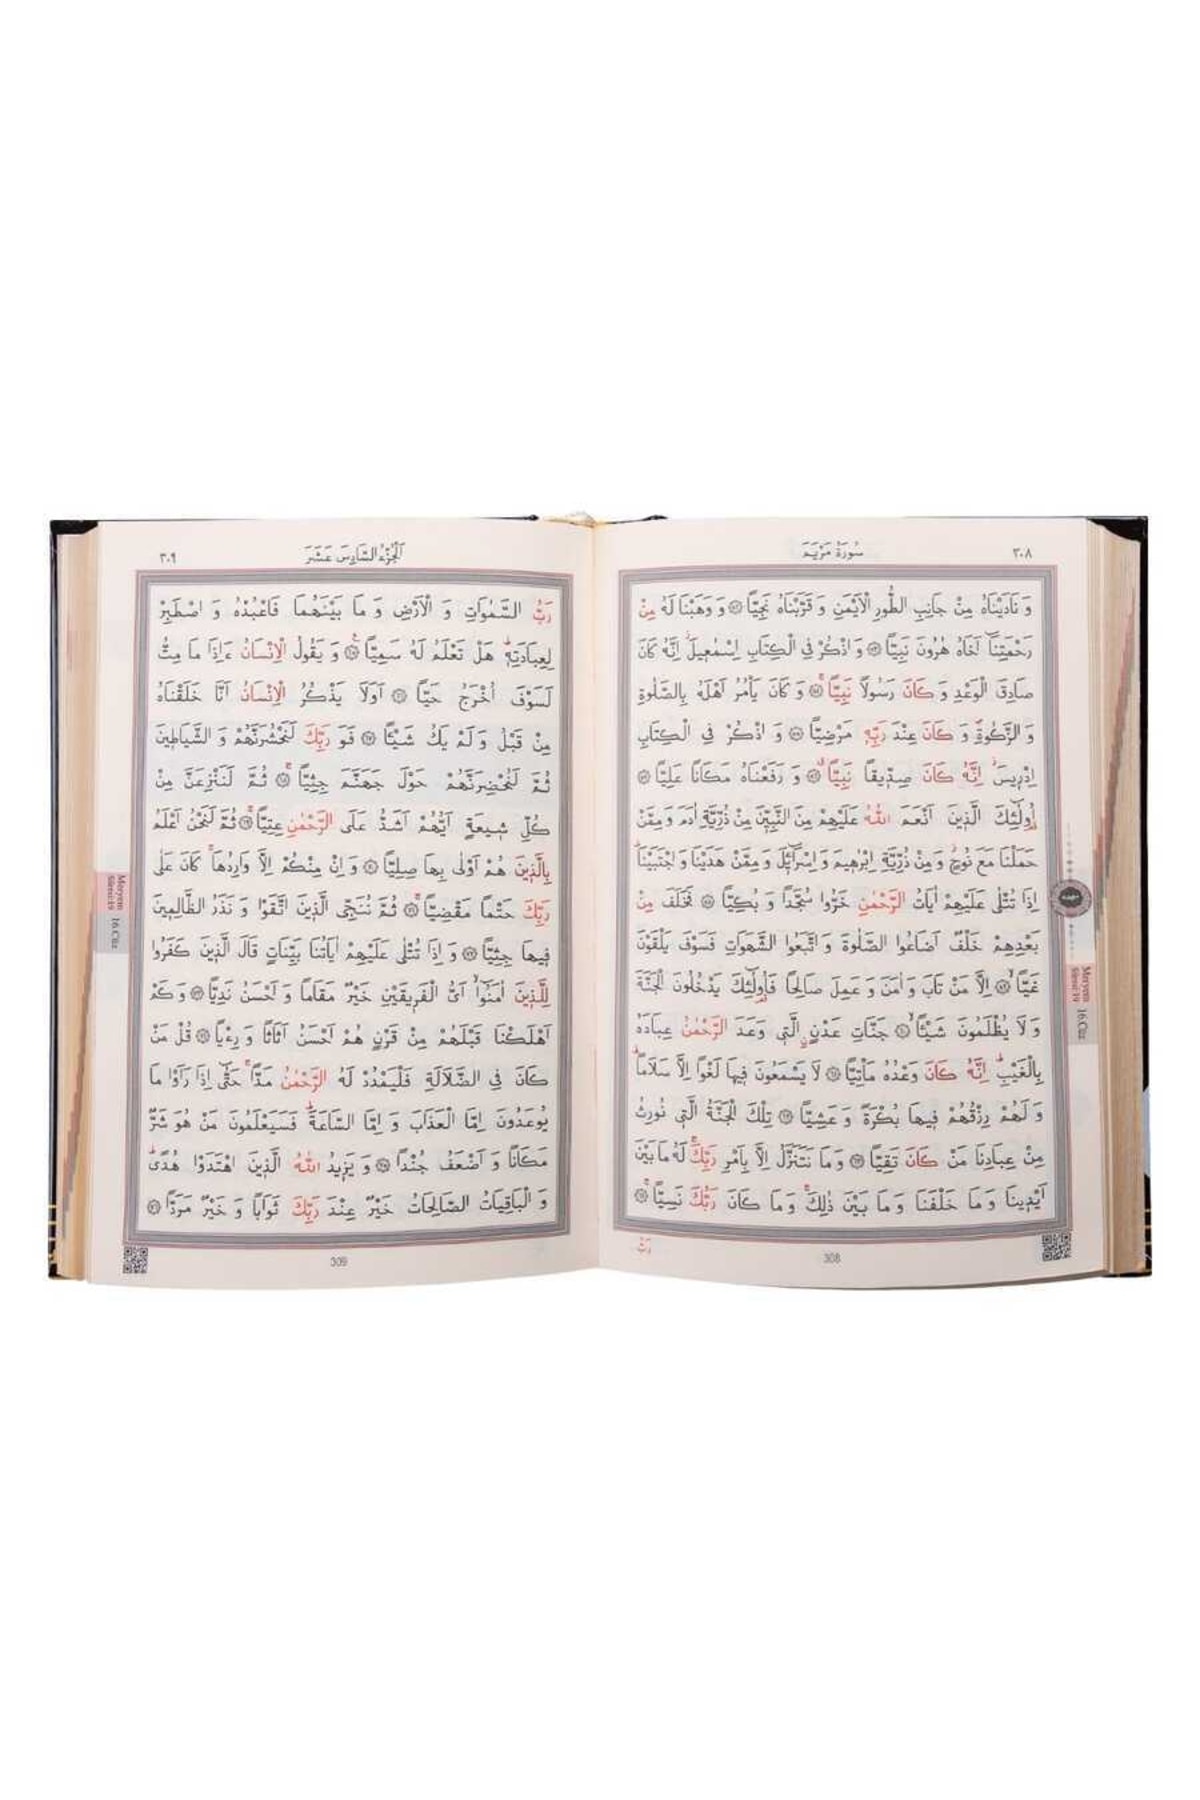 ٣٠٨
سُورَةُ مَرْيَمَ
وَ نَادَيْنَاهُ مِنْ جَانِبِ الطُّورِ الْاَيْمَنِ وَ قَرَّبْنَاهُ نَجِيًّا ﴿٥٢﴾ وَ وَهَبْنَا لَهُ مِنْ
رَحْمَتِنَٓا اَخَاهُ هٰرُونَ نَبِيًّا ﴿٥٣﴾ وَ اذْكُرْ فِي الْكِتَابِ اِسْمٰعٖيلَؗ اِنَّهُ كَانَ
صَادِقَ الْوَعْدِ وَ كَانَ رَسُولًا نَبِيًّاۚ ﴿٥٤﴾ وَ كَانَ يَاْمُرُ اَهْلَهُ بِالصَّلٰوةِ
وَ الزَّكٰوةِࣕ وَ كَانَ عِنْدَ رَبِّهٖ مَرْضِيًّا ﴿٥٥﴾ وَ اذْكُرْ فِي الْكِتَابِ
اِدْرٖيسَؗ اِنَّهُ كَانَ صِدّٖيقًا نَبِيًّاۗ ﴿٥٦﴾ وَ رَفَعْنَاهُ مَكَانًا عَلِيًّا ﴿٥٧﴾
اُو۬لٰٓئِكَ الَّذٖينَ اَنْعَمَ اللّٰهُ عَلَيْهِمْ مِنَ النَّبِيّٖنَ مِنْ ذُرِّيَّةِ اٰدَمَ وَ مِمَّنْ
حَمَلْنَا مَعَ نُوحٍؗ وَ مِنْ ذُرِّيَّةِ اِبْرٰهٖيمَ وَ اِسْرَٓائٖلَ وَ مِمَّنْ هَدَيْنَا وَ اجْتَبَيْنَاؕ
اِذَا تُتْلٰى عَلَيْهِمْ اٰيَاتُ الرَّحْمٰنِ خَرُّوا سُجَّدًا وَ بُكِيًّا ﴿٥٨﴾ فَخَلَفَ مِنْ
بَعْدِهِمْ خَلْفٌ اَضَاعُوا الصَّلٰوةَ وَ اتَّبَعُوا الشَّهَوَاتِ فَسَوْفَ يَلْقَوْنَ
غَيًّاۙ ﴿٥٩﴾ اِلَّا مَنْ تَابَ وَ اٰمَنَ وَ عَمِلَ صَالِحًا فَاُو۬لٰٓئِكَ يَدْخُلُونَ الْجَنَّةَ
وَ لَا يُظْلَمُونَ شَيْـًٔاۙ ﴿٦٠﴾ جَنَّاتِ عَدْنٍۨ الَّتٖي وَعَدَ الرَّحْمٰنُ عِبَادَهُ
بِالْغَيْبِؕ اِنَّهُ كَانَ وَعْدُهُ مَاْتِيًّا ﴿٦١﴾ لَا يَسْمَعُونَ فٖيهَا لَغْوًا اِلَّا سَلَامًاؕ
وَ لَهُمْ رِزْقُهُمْ فٖيهَا بُكْرَةً وَ عَشِيًّا ﴿٦٢﴾ تِلْكَ الْجَنَّةُ الَّتٖي نُورِثُ
مِنْ عِبَادِنَا مَنْ كَانَ تَقِيًّا ﴿٦٣﴾ وَ مَا نَتَنَزَّلُ اِلَّا بِاَمْرِ رَبِّكَۚ لَهُ مَا بَيْنَ
اَيْدٖينَا وَ مَا خَلْفَنَا وَ مَا بَيْنَ ذٰلِكَۚ وَ مَا كَانَ رَبُّكَ نَسِيًّاۚ ﴿٦٤﴾
رَبُّ
308
Meryem
Sûresi:19
16.Cüz
٣٠٩
اَلْجُزْءُ السَّادِسَ عَشَرَ
رَبُّ السَّمٰوَاتِ وَ الْاَرْضِ وَ مَا بَيْنَهُمَا فَاعْبُدْهُ وَ اصْطَبِرْ
لِعِبَادَتِهٖؕ هَلْ تَعْلَمُ لَهُ سَمِيًّاࣖ ﴿٦٥﴾ وَ يَقُولُ الْاِنْسَانُ ءَاِذَا مَا مِتُّ
لَسَوْفَ اُخْرَجُ حَيًّا ﴿٦٦﴾ اَوَلَا يَذْكُرُ الْاِنْسَانُ اَنَّا خَلَقْنَاهُ
مِنْ قَبْلُ وَ لَمْ يَكُ شَيْـًٔا ﴿٦٧﴾ فَوَ رَبِّكَ لَنَحْشُرَنَّهُمْ وَ الشَّيَاطٖينَ
ثُمَّ لَنُحْضِرَنَّهُمْ حَوْلَ جَهَنَّمَ جِثِيًّاۚ ﴿٦٨﴾ ثُمَّ لَنَنْزِعَنَّ مِنْ
كُلِّ شٖيعَةٍ اَيُّهُمْ اَشَدُّ عَلَى الرَّحْمٰنِ عِتِيًّاۚ ﴿٦٩﴾ ثُمَّ لَنَحْنُ اَعْلَمُ
بِالَّذٖينَ هُمْ اَوْلٰى بِهَا صِلِيًّا ﴿٧٠﴾ وَ اِنْ مِنْكُمْ اِلَّا وَارِدُهَاۚ كَانَ عَلٰى
رَبِّكَ حَتْمًا مَقْضِيًّاۚ ﴿٧١﴾ ثُمَّ نُنَجِّي الَّذٖينَ اتَّقَوْا وَ نَذَرُ الظَّالِمٖينَ
فٖيهَا جِثِيًّا ﴿٧٢﴾ وَ اِذَا تُتْلٰى عَلَيْهِمْ اٰيَاتُنَا بَيِّنَاتٍ قَالَ الَّذٖينَ كَفَرُوا
لِلَّذٖينَ اٰمَنُٓواۙ اَيُّ الْفَرٖيقَيْنِ خَيْرٌ مَقَامًا وَ اَحْسَنُ نَدِيًّا ﴿٧٣﴾ وَ كَمْ
اَهْلَكْنَا قَبْلَهُمْ مِنْ قَرْنٍ هُمْ اَحْسَنُ اَثَاثًا وَ رِءْيًا ﴿٧٤﴾ قُلْ مَنْ
كَانَ فِي الضَّلَالَةِ فَلْيَمْدُدْ لَهُ الرَّحْمٰنُ مَدًّاۚ حَتّٰٓى اِذَا رَاَوْا مَا
يُوعَدُونَ اِمَّا الْعَذَابَ وَ اِمَّا السَّاعَةَؕ فَسَيَعْلَمُونَ مَنْ هُوَ شَرٌّ
مَكَانًا وَ اَضْعَفُ جُنْدًا ﴿٧٥﴾ وَ يَزٖيدُ اللّٰهُ الَّذٖينَ اهْتَدَوْا هُدًىؕ
وَ الْبَاقِيَاتُ الصَّالِحَاتُ خَيْرٌ عِنْدَ رَبِّكَ ثَوَابًا وَ خَيْرٌ مَرَدًّا ﴿٧٦﴾
309
Meryem
Sûresi:19
16.Cüz